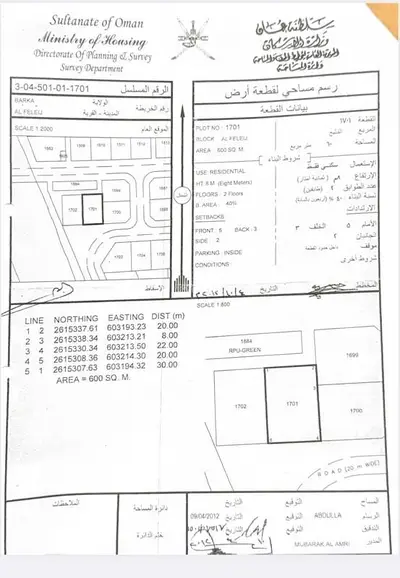 Sultanate of Oman
Ministry of Housing
Directorate Of Planning & Survey
Survey Department
سلطنة عمان
وزارة الإسكان
دائرة المساحة
3-04-501-01-1701
الرقم المسلسل
BARKA
الولاية
رقم الخريطة
AL FELEIJ
المدينة - القرية
SCALE 1:2000
الموقع العام
1702
1701
1700
الإسقاط
رسم مساحي لقطعة أرض
بيانات القطعة
PLOT NO · 1701
القطعة
١٧٠١
BLOCK AL.FELEIJ
المربع
الفليج
AREA 600 SQ. M.
المساحة
متر مربع
شروط البناء
USE RESIDENTIAL
الإستعمال
سكني فقط
HT 8 M (Eight Meters)
الارتفاع
FLOORS : 2 Floors
عدد الطوابق
B. AREA 40%
نسبة البناء
SETBACKS
الارتدادات
FRONT : 5 BACK : 3
الأمام ٥ الخلف ٣
SIDE : 2
الجانبان ٢
PARKING : INSIDE
موقف
داخل حدود القطعة
CONDITIONS
شروط أخرى
التاريخ
المخطط
SCALE 1:800
LINE NORTHING EASTING DIST (m)
1 2 2615337.61 603193.23 20.00
2 3 2615338.34 603213.21 8.00
3 4 2615330.34 603213.50 22.00
4 5 2615308.36 603214.30 20.00
5 1 2615307.63 603194.32 30.00
AREA = 600 SQ. M.
1684
RPU-GREEN
1699
1702
1701
1700
1
2
3
5
4
ROAD (20 m WIDE)
الملاحظات
دائرة المساحة
ختم الدائرة
المساح
التوقيع
التاريخ
09/04/2012
الرسام
ABDULLA
التوقيع
التاريخ
التدقيق
التوقيع
التاريخ
المدير
MUBARAK AL AMRI